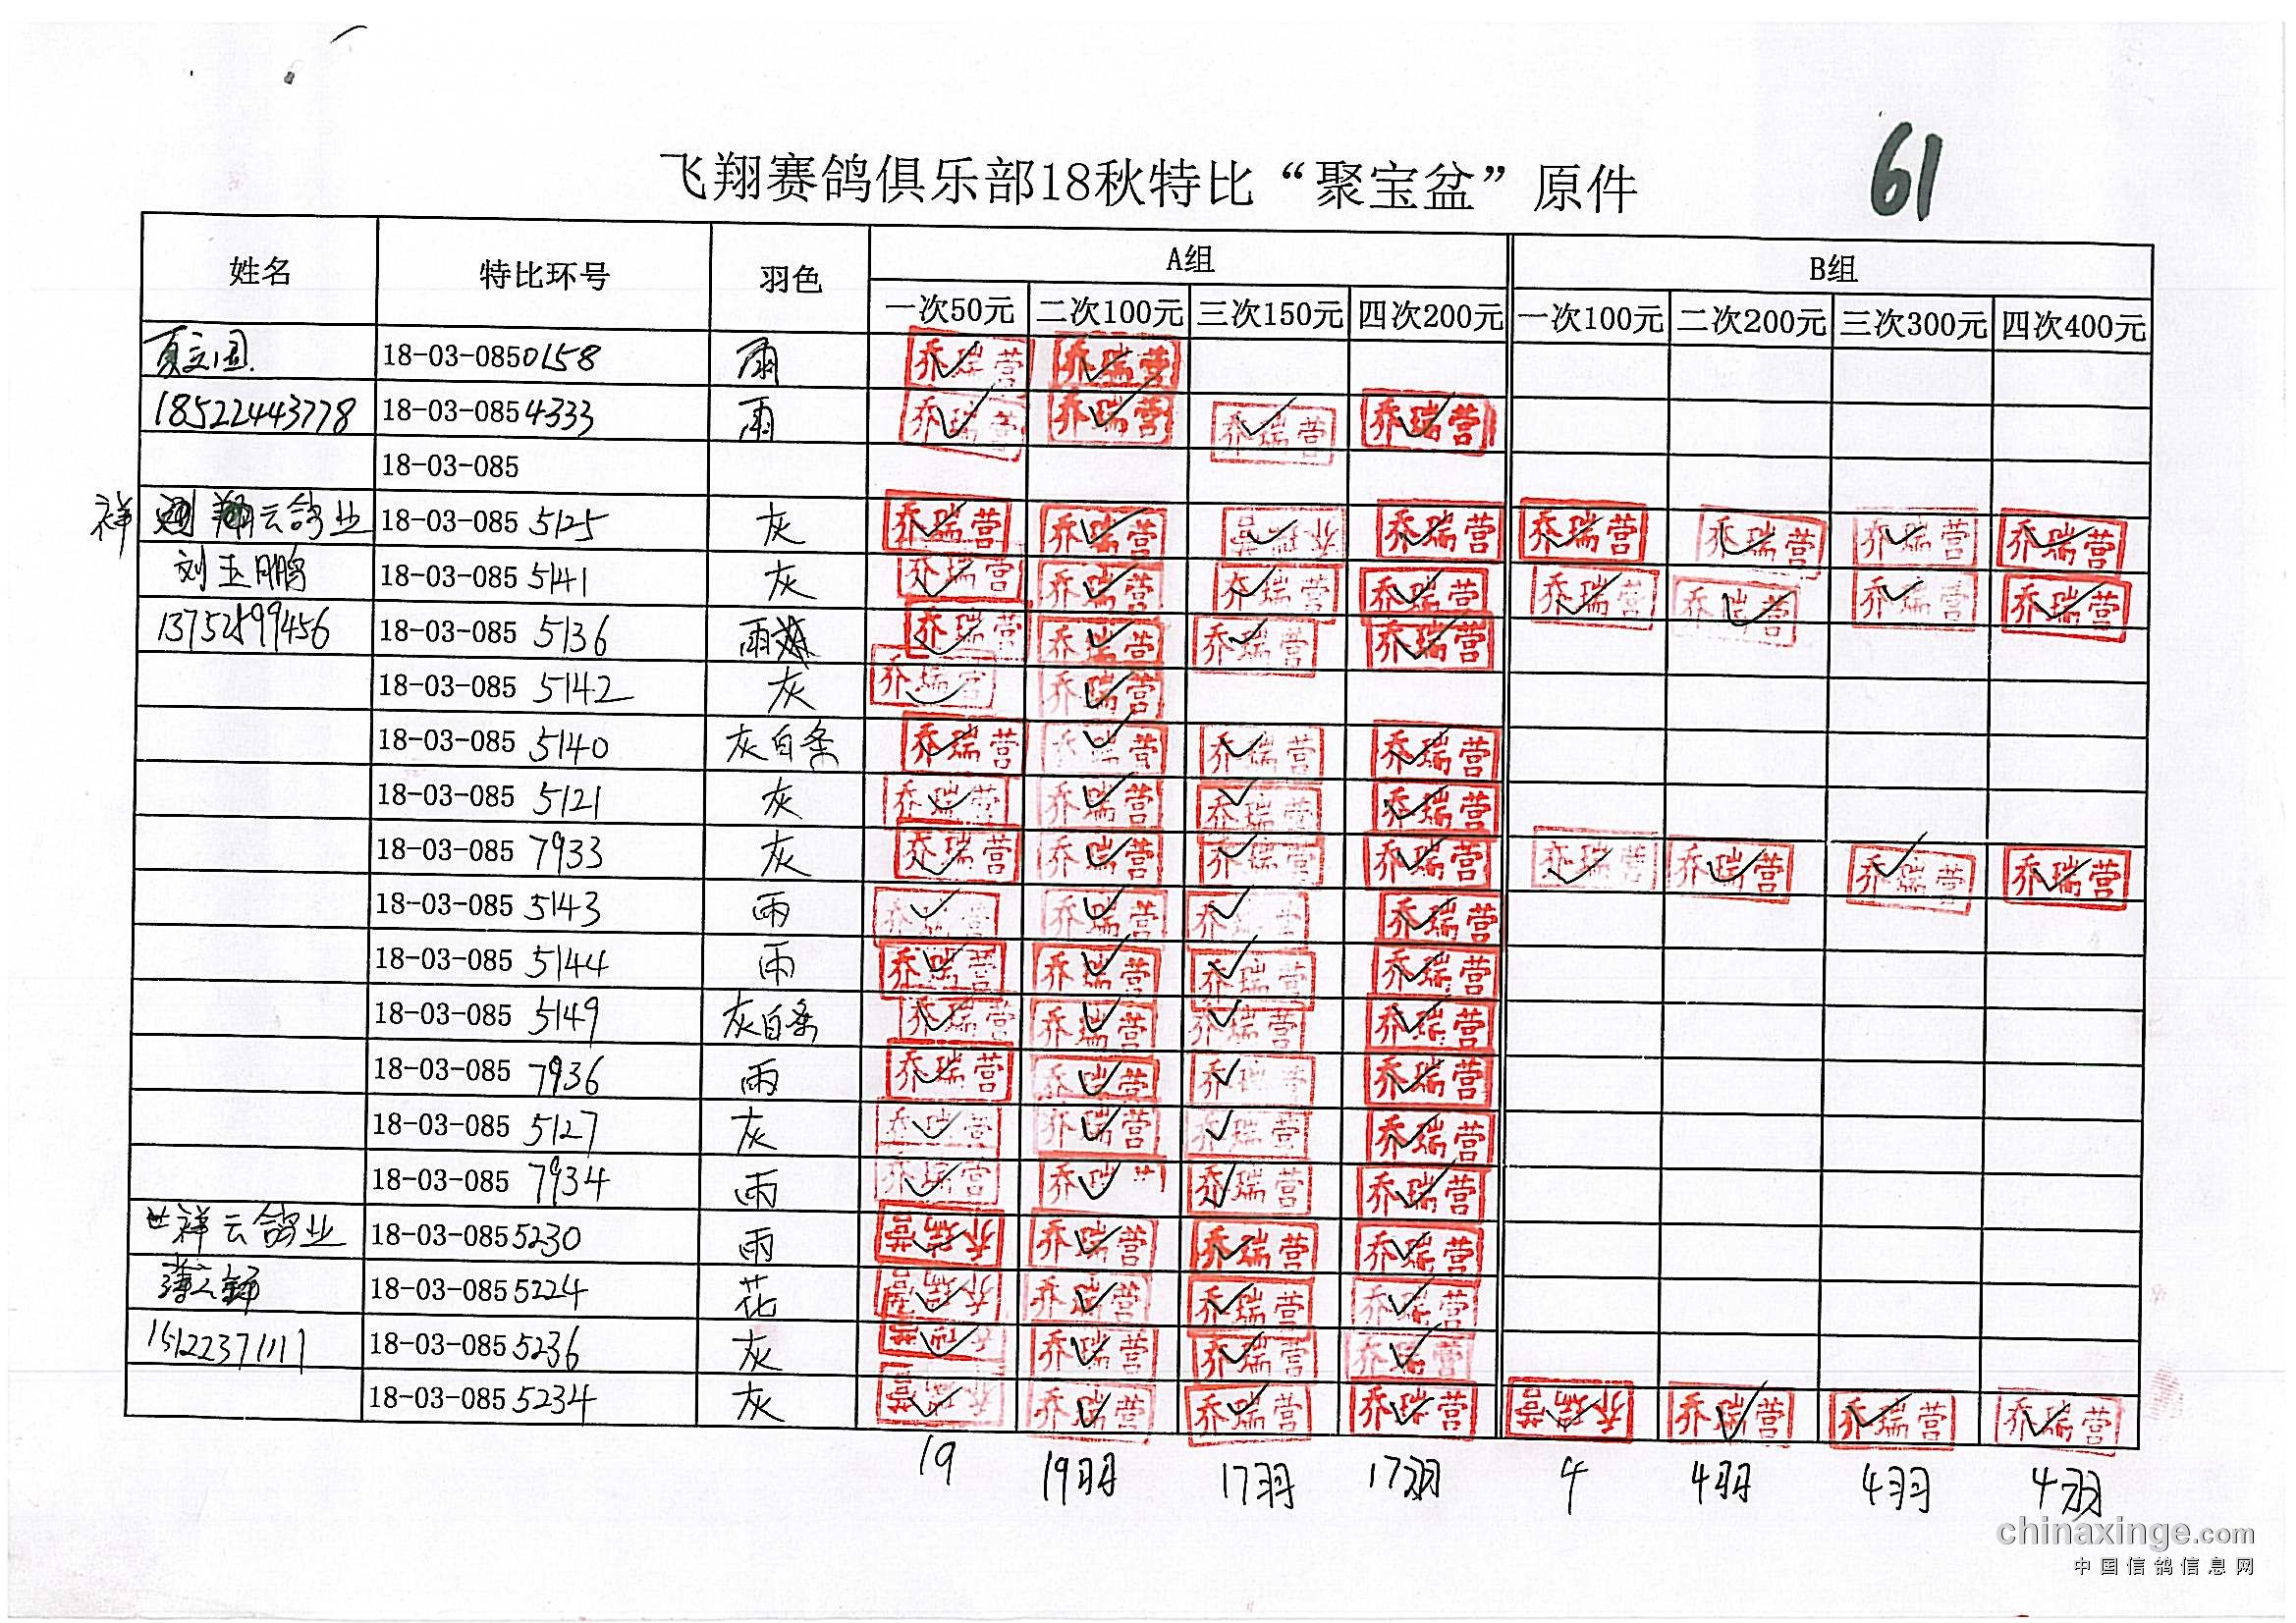 61
飞翔赛鸽俱乐部18秋特比“聚宝盆”原件
姓名 特比环号 羽色 A组 B组
一次50元 二次100元 三次150元 四次200元 一次100元 二次200元 三次300元 四次400元
18-03-0850158 雨 乔瑞营 乔瑞营
18522443778 18-03-085 4333 雨 乔瑞营 乔瑞营 乔瑞营 乔瑞营
18-03-085
祥 翔云鸽业 18-03-085 5125 灰 乔瑞营 乔瑞营 乔瑞营 乔瑞营 乔瑞营 乔瑞营 乔瑞营 乔瑞营
刘玉鹏 18-03-085 5141 灰 乔瑞营 乔瑞营 乔瑞营 乔瑞营 乔瑞营 乔瑞营 乔瑞营 乔瑞营
13752899456 18-03-085 5136 雨 乔瑞营 乔瑞营 乔瑞营 乔瑞营
18-03-085 5142 灰 乔瑞营 乔瑞营
18-03-085 5140 灰白条 乔瑞营 乔瑞营 乔瑞营 乔瑞营
18-03-085 5121 灰 乔瑞营 乔瑞营 乔瑞营 乔瑞营
18-03-085 7933 灰 乔瑞营 乔瑞营 乔瑞营 乔瑞营 乔瑞营 乔瑞营 乔瑞营 乔瑞营
18-03-085 5143 雨 乔瑞营 乔瑞营 乔瑞营 乔瑞营
18-03-085 5144 雨 乔瑞营 乔瑞营 乔瑞营 乔瑞营
18-03-085 5149 灰白条 乔瑞营 乔瑞营 乔瑞营 乔瑞营
18-03-085 7936 雨 乔瑞营 乔瑞营 乔瑞营 乔瑞营
18-03-085 5127 灰 乔瑞营 乔瑞营 乔瑞营 乔瑞营
18-03-085 7934 雨 乔瑞营 乔瑞营 乔瑞营 乔瑞营
世祥云鸽业 18-03-085 5230 雨 乔瑞营 乔瑞营 乔瑞营 乔瑞营
18-03-085 5224 花 乔瑞营 乔瑞营 乔瑞营 乔瑞营
15122371111 18-03-085 5236 灰 乔瑞营 乔瑞营 乔瑞营 乔瑞营
18-03-085 5234 灰 乔瑞营 乔瑞营 乔瑞营 乔瑞营 乔瑞营 乔瑞营 乔瑞营 乔瑞营
19 19羽 17羽 17羽 4 4羽 4羽 4羽
chinaxinge.com
中国信鸽信息网